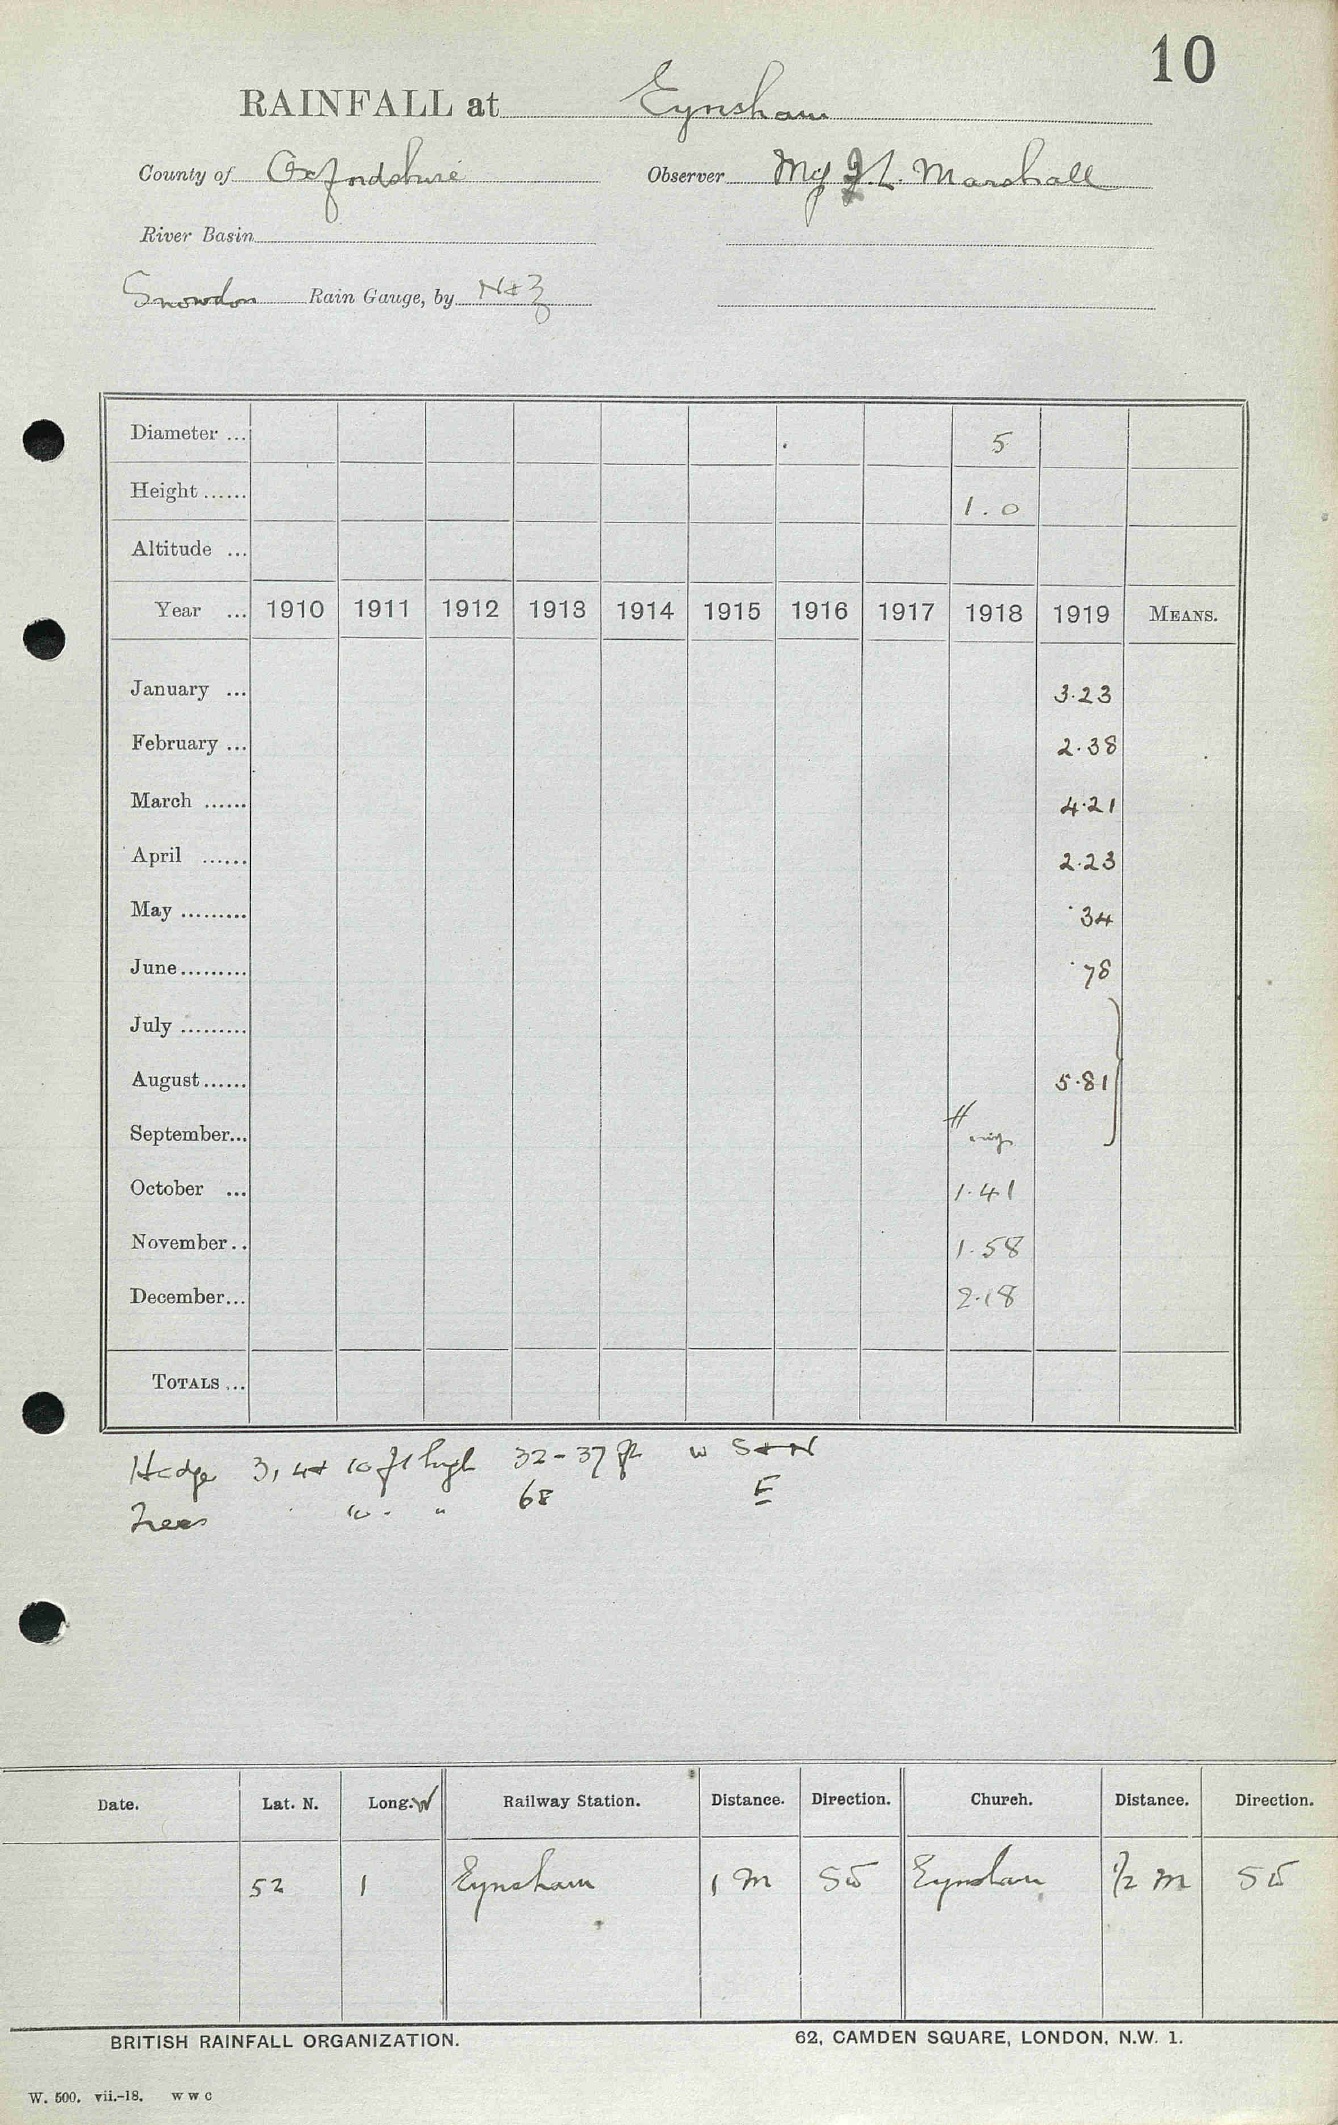 10
RAINFALL at Eynsham
County of Oxfordshire Observer Marshall
River Basin
Snowdon Rain Gauge, by N & Z
Diameter ... 5
Height ...... 1.0
Altitude ...
Year ... 1910 1911 1912 1913 1914 1915 1916 1917 1918 1919 MEANS.
January ... 3.23
February ... 2.38
March ...... 4.21
April ...... 2.23
May ......... .34
June......... .78
July .........
August...... 5.81 }
September...
October ... 1.41
November.. 1.58
December... 2.18
TOTALS ...
Hedge 3, 4 & 10 ft high 32-37 ft W S & N
Trees 10 " " 68 E
Date. Lat. N. Long. W Railway Station. Distance. Direction. Church. Distance. Direction.
52 1 Eynsham 1 m SW Eynsham 1/2 m SW
BRITISH RAINFALL ORGANIZATION. 62, CAMDEN SQUARE, LONDON, N.W. 1.
W. 500. vii.-18. W W C